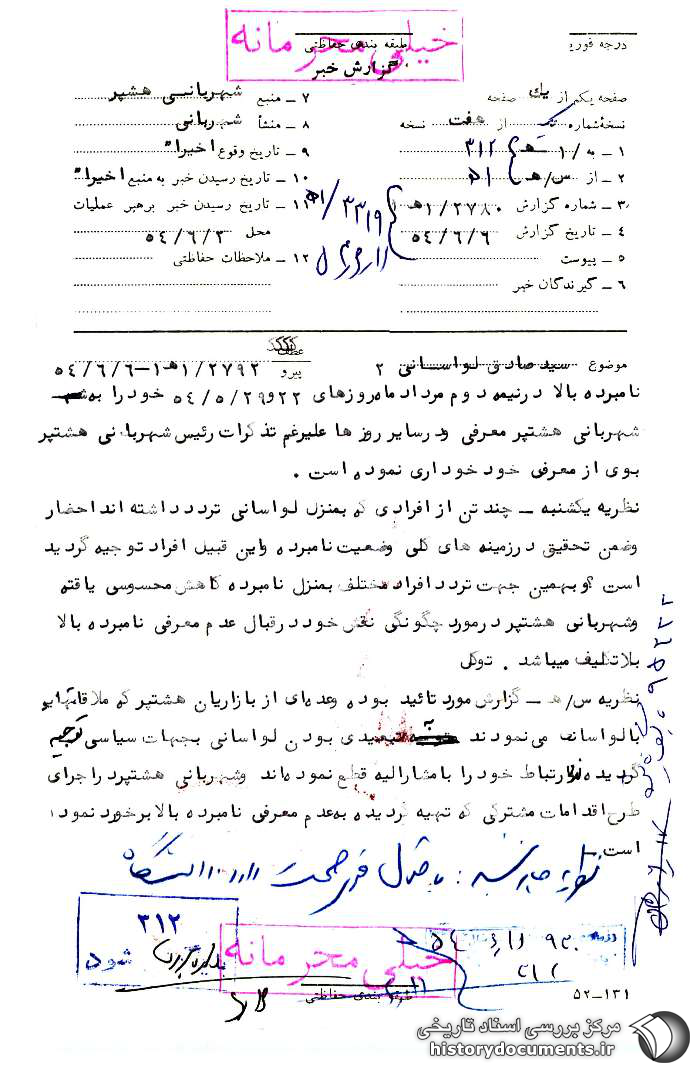 خیلی محرمانه
درجه فوری
طبقه بندی حفاظتی
گزارش خبر
صفحه یکم از یك صفحه
نسخهٔ شماره یک از هفت نسخه
۱ ـ به / ۱ ه‍ ۳۱۲
۲ ـ از س/ه‍ ۵۱
۳ ـ شماره گزارش ۲۷۸۰/ ۱ه‍
۴ ـ تاریخ گزارش ۵۴/۶/۶
۵ ـ پیوست
۶ ـ گیرندگان خبر
۷ ـ منبع شهربانی هشتپر
۸ ـ منشأ شهربانی
۹ ـ تاریخ وقوع اخیرا"
۱۰ ـ تاریخ رسیدن خبر به منبع اخیرا"
۱۱ ـ تاریخ رسیدن خبر برهبر عملیات
محل ۵۴/۶/۳
۱۲ ـ ملاحظات حفاظتی
موضوع سید صادق لواسانی ۲
عطف
پیرو ۲۷۹۲/ ۱ه‍ ۱-۵۴/۶/۶
نامبرده بالا در نیمه دوم مرداد ماه روزهای ۲۲ و ۵۴/۵/۲۹ خود را به
شهربانی هشتپر معرفی ودر سایر روز ها علیرغم تذکرات رئیس شهربانی هشتپر
بوی از معرفی خود خود داری نموده است .
نظریه یکشنبه ـ چند تن از افرادی که بمنزل لواسانی تردد داشته اند احضار
وضمن تحقیق در زمینه های کلی وضعیت نامبرده واین قبیل افراد توجیه گردید
است ؟ وبهمین جهت تردد افراد مختلف بمنزل نامبرده کاهش محسوسی یافته
وشهربانی هشتپر در مورد چگونگی نقش خود در قبال عدم معرفی نامبرده بالا
بلاتکلیف میباشد . توکل
نظریه س/ه‍ ـ گزارش مورد تائید بوده وعده‌ای از بازاریان هشتپر که ملاقاتهایی
با لواسانی می نمودند به تبعیدی بودن لواسانی بجهات سیاسی توجیه
گردیده و ارتباط خود را با مشارالیه قطع نموده اند وشهربانی هشتپر در اجرای
طرح اقدامات مشترکی که تهیه گردیده به عدم معرفی نامبرده بالا برخورد نموده
است .
۳۱۲
شود
خیلی محرمانه
طبقه بندی حفاظتی
۵۲–۱۳۱
مرکز بررسی اسناد تاریخی
historydocuments.ir